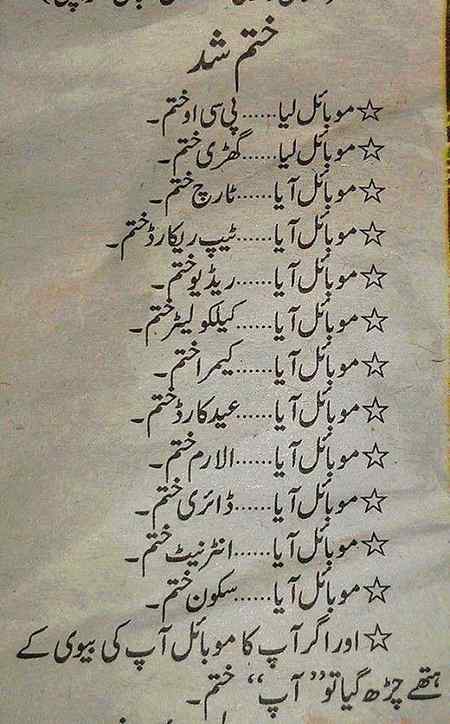 ختم شد
☆ موبائل لیا......پی سی او ختم۔
☆ موبائل لیا......گھڑی ختم۔
☆ موبائل آیا......ٹارچ ختم۔
☆ موبائل آیا......ٹیپ ریکارڈ ختم۔
☆ موبائل آیا......ریڈیو ختم۔
☆ موبائل آیا......کیلکولیٹر ختم۔
☆ موبائل آیا......کیمرا ختم۔
☆ موبائل آیا......عید کارڈ ختم۔
☆ موبائل آیا......الارم ختم۔
☆ موبائل آیا......ڈائری ختم۔
☆ موبائل آیا......انٹرنیٹ ختم۔
☆ موبائل آیا......سکون ختم۔
☆ اور اگر آپ کا موبائل آپ کی بیوی کے
ہتھے چڑھ گیا تو ”آپ“ ختم۔